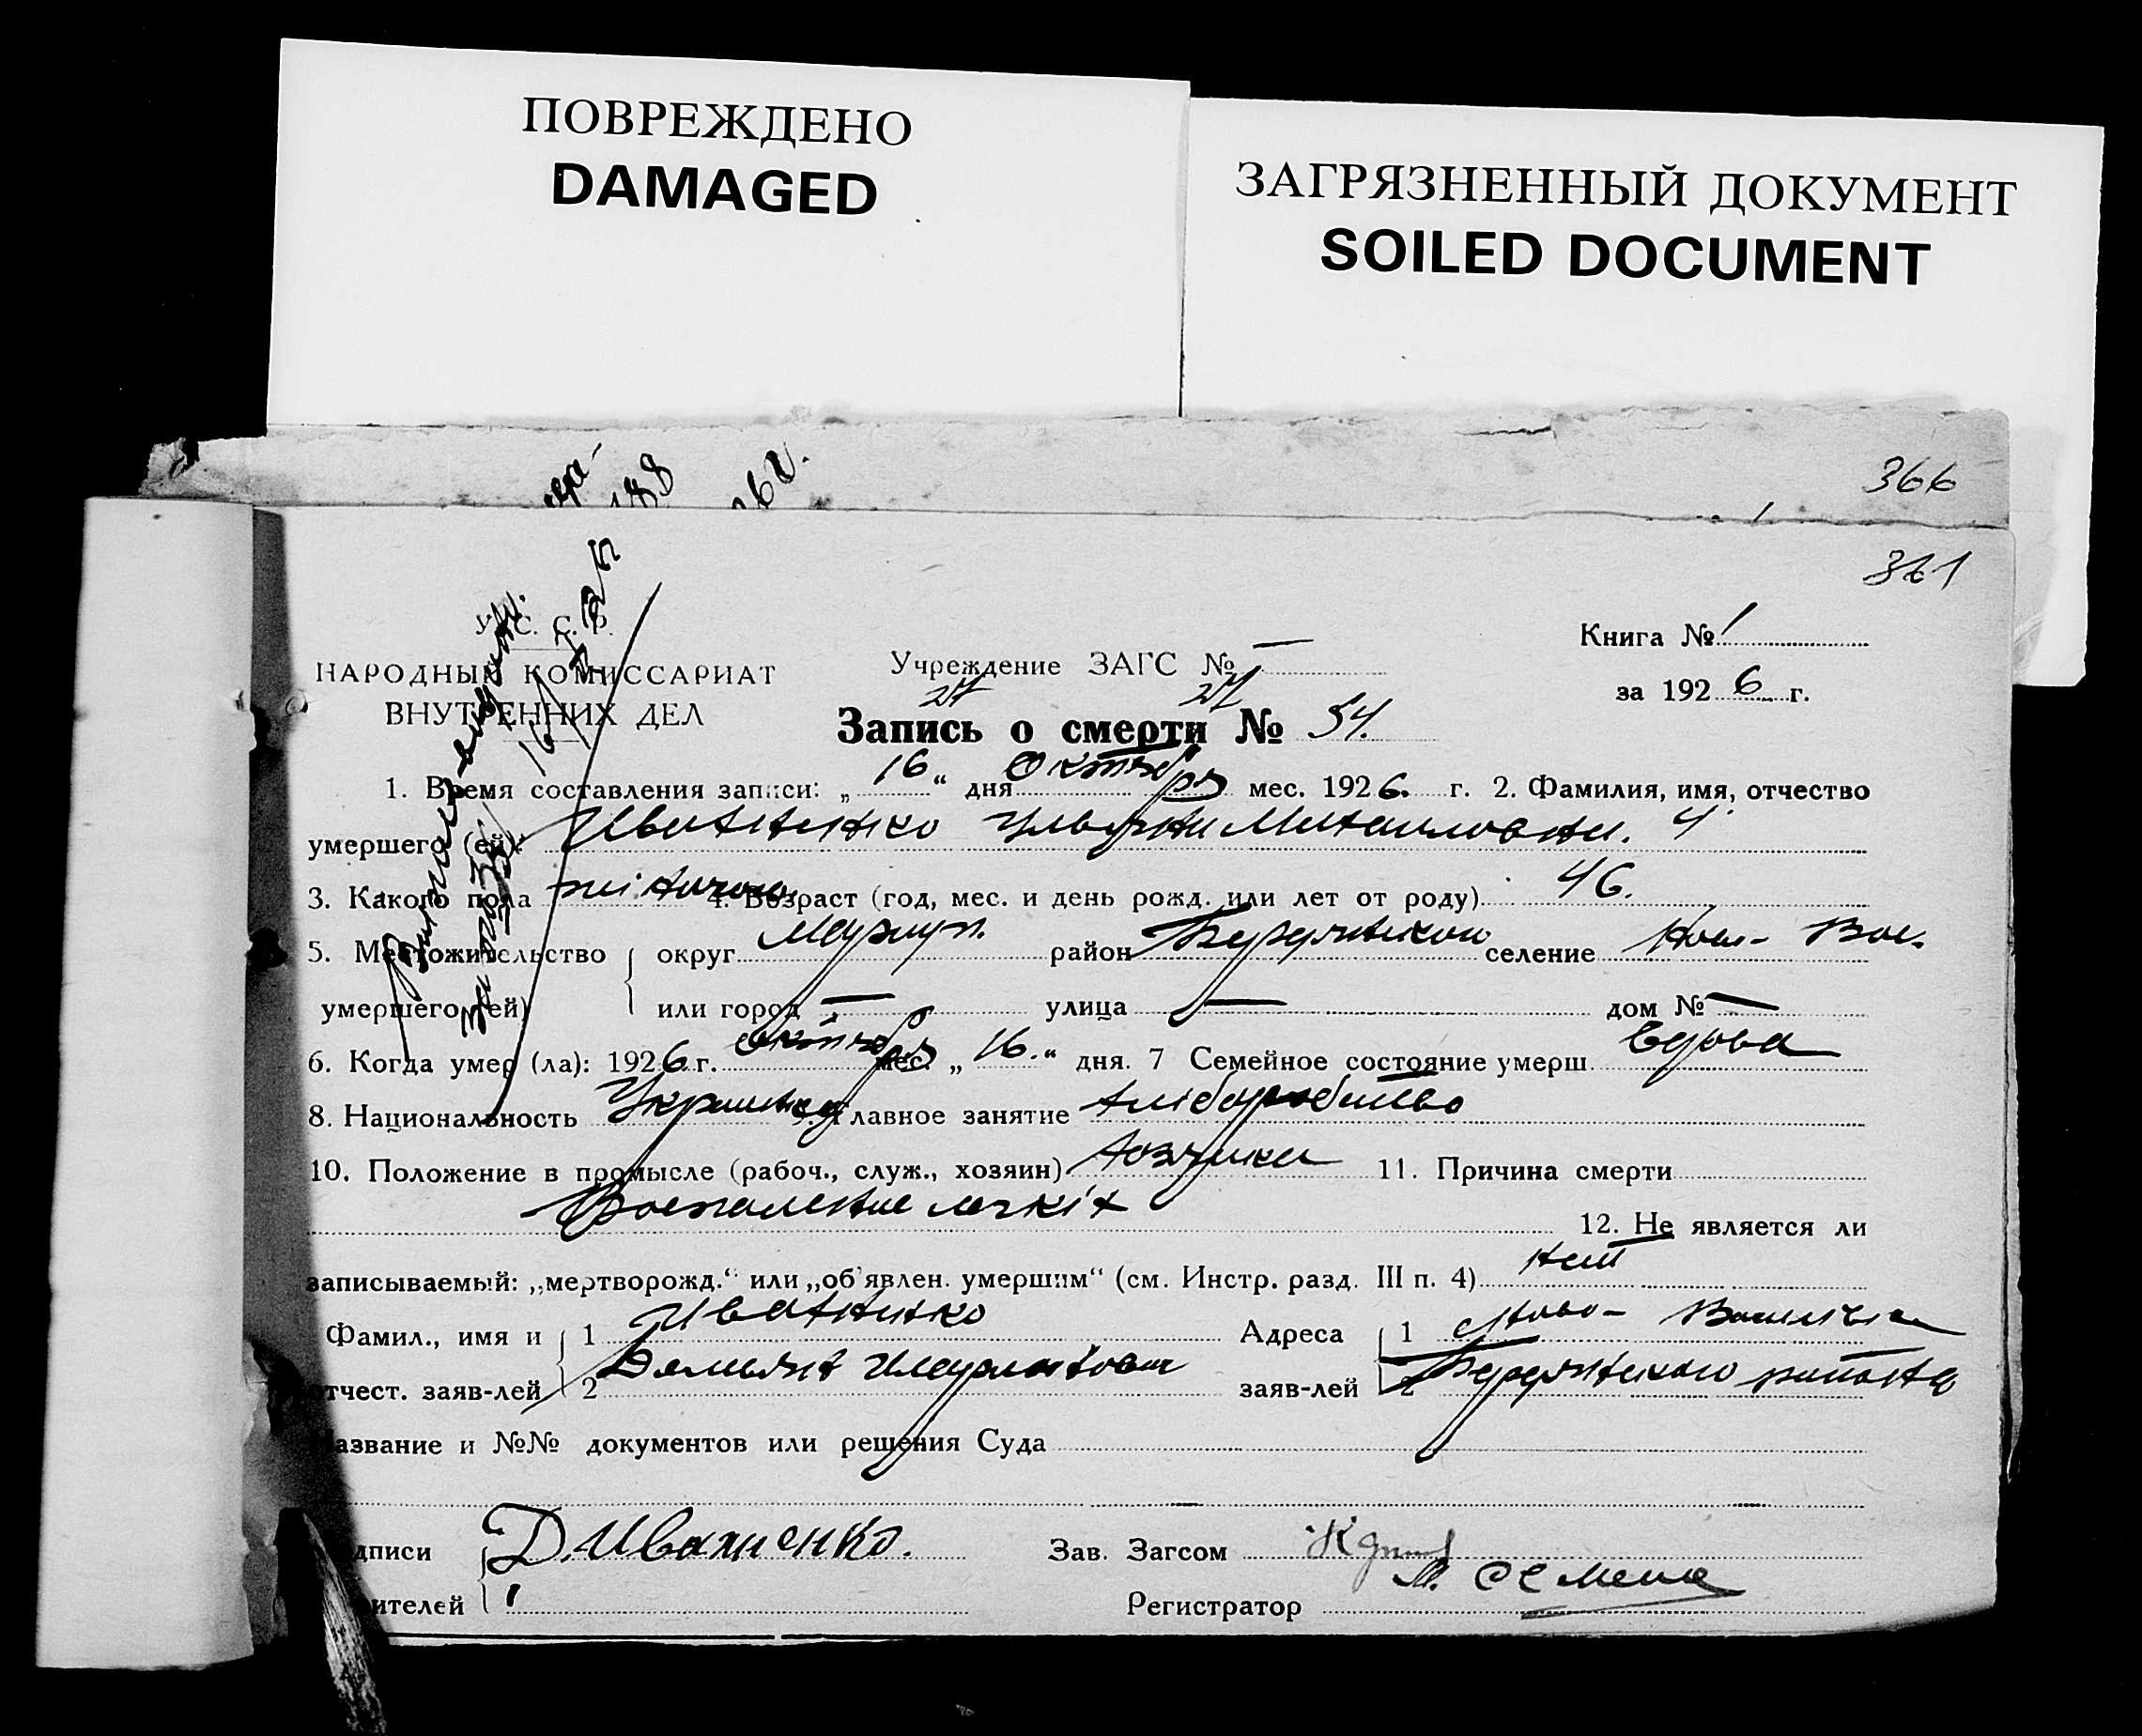 ПОВРЕЖДЕНО
DAMAGED
ЗАГРЯЗНЕННЫЙ ДОКУМЕНТ
SOILED DOCUMENT
366
361
У. С. С. Р.
НАРОДНЫЙ КОМИССАРИАТ
ВНУТРЕННИХ ДЕЛ
Учреждение ЗАГС №
Книга № 1
за 1926 г.
Запись о смерти № 54.
1. Время составления записи: „16“ дня Октября мес. 1926. г. 2. Фамилия, имя, отчество
умершего (ей): Иваненко Михайловна.
3. Какого пола жіночого 4. Возраст (год, мес. и день рожд. или лет от роду) 46.
5. Местожительство округ Мариуп. район Бердянском селение Ново- Вас.
умершего (ей) или город — улица — дом № —
6. Когда умер (ла): 1926 г. октября мес. „16.“ дня. 7 Семейное состояние умерш. вдова
8. Национальность 9. Главное занятие хліборобство
10. Положение в промысле (рабоч., служ., хозяин) хозяйка 11. Причина смерти
Воспаление легкіх 12. Не является ли
записываемый: „мертворожд.“ или „об'явлен. умершим“ (см. Инстр. разд. III п. 4) нет
Фамил., имя и 1 Иваненко Адреса 1 Ново- Васильевка
отчест. заяв-лей 2 Демьян заяв-лей 2 Бердянского района
азвание и №№ документов или решения Суда
дписи Д. Иваненко. Зав. Загсом
ителей Регистратор